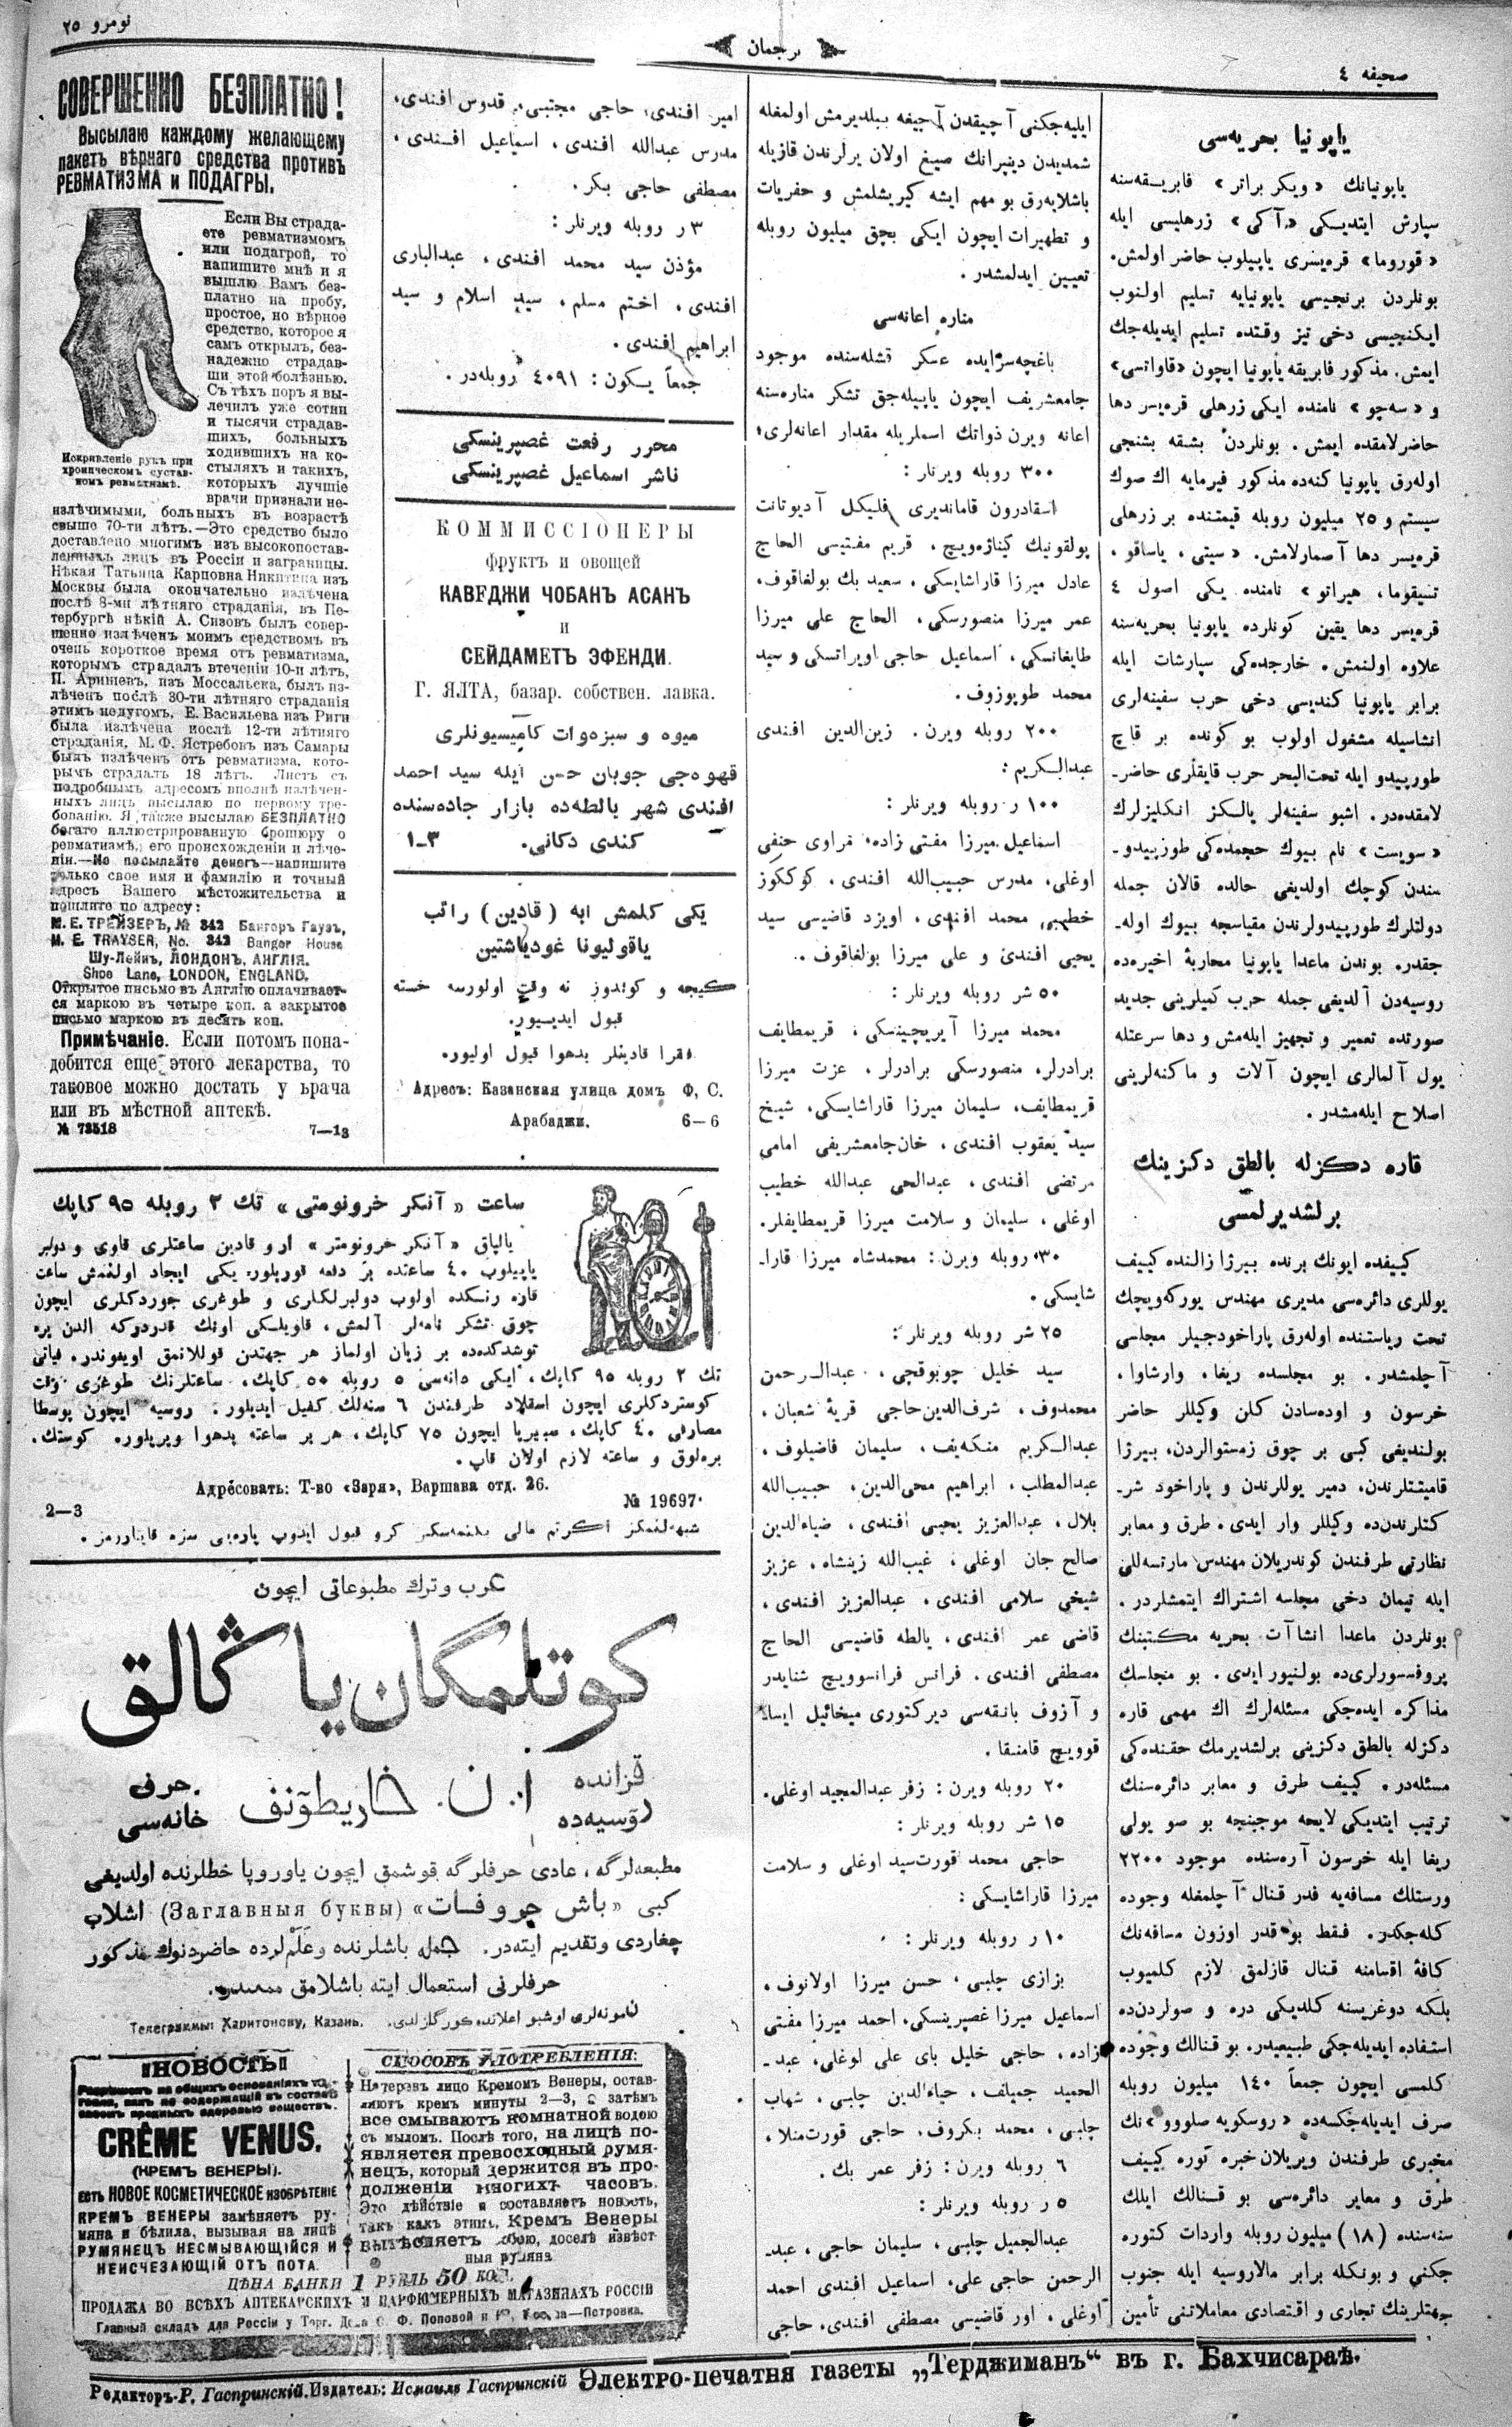 صحیفه ٤
ترجمان
نومرو ٢٥
یاپونیا بحریه‌سی
یاپونیانك «ویكر براتر» فابریقه‌سنه
سپارش ایتدیكی «آكی» زرهلیسی ایله
«قوروما» قره‌یسری یاپیلوب حاضر اولمش.
بونلردن برنجیسی یاپونیایه تسلیم اولنوب
ایكنجیسی دخی تیز وقتده تسلیم ایدیله‌جك
ایمش. مذكور فابریقه یاپونیا ایچون «قاواتسی»
و «سه‌چو» نامنده ایكی زرهلی قره‌یسر دها
حاضرلامقده ایمش. بونلردن بشقه بشنجی
اوله‌رق یاپونیا كنه‌ده مذكور فیرمایه اك صوك
سیستم و ٢٥ میلیون روبله قیمتنده بر زرهلی
قره‌یسر دها آصمارلامش. «سیتی، یاساقو،
تسیقوما، هیراتو» نامنده یكی اصول ٤
قره‌یسر دها یقین كونلرده یاپونیا بحریه‌سنه
علاوه اولنمش. خارجده‌كی سپارشات ایله
برابر یاپونیا كندیسی دخی حرب سفینه‌لری
انشاسیله مشغول اولوب بو كونده بر قاچ
طورپیدو ایله تحت‌البحر حرب قایقلری حاضر-
لامقده‌در. اشبو سفینه‌لر یالكز انكلیزلرك
«سویست» نام بیوك حجمده‌كی طورپیدو-
سندن كوچك اولدیغی حالده قالان جمله
دولتلرك طورپیدولرندن مقیاسجه بیوك اوله-
جقدر. بوندن ماعدا یاپونیا محاربهٔ اخیره‌ده
روسیه‌دن آلدیغی جمله حرب كمیلرینی جدید
صورتده تعمیر و تجهیز ایله‌مش و دها سرعتله
یول آلمالری ایچون آلات و ماكنه‌لرینی
اصلاح ایله‌مشدر.
قاره دكزله بالطق دكزینك
برلشدیرلمسی
كییفده ایونك برنده بیرژا زالنده كییف
یوللری دائره‌سی مدیری مهندس یوركه‌ویچك
تحت ریاستنده اوله‌رق پاراخودجیلر مجلسی
آچلمشدر. بو مجلسده ریغا، وارشاوا،
خرسون و اوده‌سادن كلن وكیللر حاضر
بولندیغی كبی بر چوق زمستوالردن، بیرژا
قامیتتلرندن، دمیر یوللرندن و پاراخود شر-
كتلرندن‌ده وكیللر وار ایدی. طرق و معابر
نظارتی طرفندن كوندریلان مهندس مارتسه‌للی
ایله تیمان دخی مجلسه اشتراك ایتمشلردر.
بونلردن ماعدا انشاآت بحریه مكتبنك
پروفسورلری‌ده بولنیور ایدی. بو مجلسك
مذاكره ایده‌جكی مسئله‌لرك اك مهمی قاره
دكزله بالطق دكزینی برلشدیرمك حقنده‌كی
مسئله‌در. كییف طرق و معابر دائره‌سنك
ترتیب ایتدیكی لایحه موجبنجه بو صو یولی
ریغا ایله خرسون آره‌سنده موجود ٢٢٠٠
ورستلك مسافه‌یه قدر قنال آچلمغله وجوده
كله‌جكدر. فقط بو قدر اوزون مسافه‌نك
كافهٔ اقسامنه قنال قازلمق لازم كلمیوب
بلكه دوغریسنه كلدیكی دره و صولردن‌ده
استفاده ایدیله‌جكی طبیعیدر. بو قنالك وجوده
كلمسی ایچون جمعاً ١٤٠ میلیون روبله
صرف ایدیله‌جكسه‌ده «روسكویه صلووو»نك
مخبری طرفندن ویریلان خبره توره كییف
طرق و معابر دائره‌سی بو قنالك ایلك
سنه‌سنده (١٨) میلیون روبله واردات كتوره
جكنی و بونكله برابر مالاروسیه ایله جنوب
جهتلرینك تجاری و اقتصادی معاملاتنی تأمین
ایلیه‌جكنی آچیقدن آچیغه بیلدیرمش اولمغله
شمدیدن دینپرانك صیغ اولان یرلرندن قازیله
باشلایه‌رق بو مهم ایشه كیریشلمش و حفریات
و تطهیرات ایچون ایكی بچق میلیون روبله
تعیین ایدلمشدر.
مناره اعانه‌سی
باغچه‌سرایده عسكر قشله‌سنده موجود
جامعشریف ایچون یاپیله‌جق تشكر مناره‌سنه
اعانه ویرن ذواتك اسملریله مقدار اعانه‌لری:
٣٠٠ روبله ویرنلر:
اسقادرون قاماندیری فلیكل آدیوتانت
پولقونیك كیناژه‌ویچ، قریم مفتیسی الحاج
عادل میرزا قاراشایسكی، سعید بك بولغاقوف،
عمر میرزا منصورسكی، الحاج علی میرزا
طایغانسكی، اسماعیل حاجی اویراتسكی و سید
محمد طوپوزوف.
٢٠٠ روبله ویرن. زین‌الدین افندی
عبدالكریم:
١٠٠ ر روبله ویرنلر:
اسماعیل میرزا مفتی زاده، غراوی حنفی
اوغلی، مدرس حبیب‌الله افندی، كوككوز
خطیبی محمد افندی، اویزد قاضیسی سید
یحیی افندی و علی میرزا بولغاقوف.
٥٠ شر روبله ویرنلر:
محمد میرزا آیریچینسكی، قریمطایف
برادرلر، منصورسكی برادرلر، عزت میرزا
قریمطایف، سلیمان میرزا قاراشایسكی، شیخ
سید یعقوب افندی، خان‌جامعشریفی امامی
مرتضی افندی، عبدالحی عبدالله خطیب
اوغلی، سلیمان و سلامت میرزا قریمطایفلر.
٣٠ روبله ویرن: محمدشاه میرزا قارا-
شایسكی.
٢٥ شر روبله ویرنلر:
سید خلیل چوبوقچی، عبدالرحمن
محمدوف، شرف‌الدین حاجی قریهٔ شعبان،
عبدالكریم منكه‌یف، سلیمان فاضیلوف،
عبدالمطلب، ابراهیم محی‌الدین، حبیب‌الله
بلال، عبدالعزیز یحیی افندی، ضیاءالدین
صالح جان اوغلی، غیب‌الله زینشاه، عزیز
شیخی سلامی افندی، عبدالعزیز افندی،
قاضی عمر افندی، یالطه قاضیسی الحاج
مصطفی افندی. فرانس فرانسوویچ شنایدر
و آزوف بانقه‌سی دیركتوری میخائیل ایسا-
قوویچ قامنقا.
٢٠ روبله ویرن: زفر عبدالمجید اوغلی.
١٥ شر روبله ویرنلر:
حاجی محمد قورت‌سید اوغلی و سلامت
میرزا قاراشایسكی:
١٠ ر روبله ویرنلر:
بزازی چلبی، حسن میرزا اولانوف،
اسماعیل میرزا غصپرینسكی، احمد میرزا مفتی
زاده، حاجی خلیل بای علی اوغلی، عبد-
الحمید جمیلف، حیاء‌الدین چلبی، شهاب
چلبی، محمد بكروف، حاجی قورت‌منلا،
٦ روبله ویرن: زفر عمر بك.
٥ ر روبله ویرنلر:
عبدالجمیل چلبی، سلیمان حاجی، عبد-
الرحمن حاجی علی، اسماعیل افندی احمد
اوغلی، اور قاضیسی مصطفی افندی، حاجی
امیر افندی، حاجی مجتبی، قدوس افندی،
مدرس عبدالله افندی، اسماعیل افندی،
مصطفی حاجی بكر.
٣ ر روبله ویرنلر:
مؤذن سید محمد افندی، عبدالباری
افندی، اختم مسلم، سید اسلام و سید
ابراهیم افندی.
جمعاً یكون: ٤٠٩١ روبله‌در.
محرر رفعت غصپرینسكی
ناشر اسماعیل غصپرینسكی
КОММИССІОНЕРЫ
фруктъ и овощей
КАВЕДЖИ ЧОБАНЪ АСАНЪ
И
СЕЙДАМЕТЪ ЭФЕНДИ.
Г. ЯЛТА, базар. собствен. лавка.
میوه و سبزه‌وات كامیسیونلری
قهوه‌جی چوبان حسن ایله سید احمد
افندی شهر یالطه‌ده بازار جاده‌سنده
كندی دكانی. ٣-١
یكی كلمش ابه (قادین) راتب
یاقولیونا غودیاشتین
كیجه و كوندوز نه وقت اولورسه خسته
قبول ایدیییور.
فقرا قادینلر بدهوا قبول اولیور.
Адресъ: Казанская улица домъ Ф. С.
Арабаджи. 6—6
СОВЕРШЕННО БЕЗПЛАТНО!
Высылаю каждому желающему
пакетъ вѣрнаго средства противъ
РЕВМАТИЗМА и ПОДАГРЫ.
Если Вы страда-
ете ревматизмомъ
или подагрой, то
напишите мнѣ и я
вышлю Вамъ без-
платно на пробу,
простое, но вѣрное
средство, которое я
самъ открылъ, без-
надежно страдав-
ши этой болѣзнью.
Съ тѣхъ поръ я вы-
лечилъ уже сотни
и тысячи страдав-
шихъ, больныхъ
ходившихъ на ко-
стыляхъ и такихъ,
которыхъ лучшіе
врачи признали не-
Искривленіе рукъ при
хроническомъ сустав-
номъ ревматизмѣ.
излѣчимыми, больныхъ въ возрастѣ
свыше 70-ти лѣтъ.—Это средство было
доставлено многимъ изъ высокопостав-
ленныхъ лицъ въ Россіи и заграницы.
Нѣкая Татьяна Карповна Никитина изъ
Москвы была окончательно излѣчена
послѣ 8-ми лѣтняго страданія, въ Пе-
тербургѣ нѣкій А. Сизовъ былъ совер-
шенно излѣченъ моимъ средствомъ въ
очень короткое время отъ ревматизма,
которымъ страдалъ втеченіи 10-и лѣтъ,
П. Аришевъ, изъ Моссальска, былъ из-
лѣченъ послѣ 30-ти лѣтняго страданія
этимъ недугомъ, Е. Васильева изъ Риги
была излѣчена послѣ 12-ти лѣтняго
страданія, М. Ф. Ястребовъ изъ Самары
былъ излѣченъ отъ ревматизма, кото-
рымъ страдалъ 18 лѣтъ. Листъ съ
подробнымъ адресомъ вполнѣ излѣчен-
ныхъ лицъ высылаю по первому тре-
бованію. Я также высылаю БЕЗПЛАТНО
богато иллюстрированную брошюру о
ревматизмѣ, его происхожденіи и лѣче-
ніи.—Не посылайте денегъ—напишите
только свое имя и фамилію и точный
адресъ Вашего мѣстожительства и
пошлите по адресу:
М. Е. ТРЕЙЗЕРЪ, № 342 Бангоръ Гаузъ,
M. E. TRAYSER, No. 342 Bangor House
Шу-Лейнъ, ЛОНДОНЪ, АНГЛІЯ.
Shoe Lane, LONDON, ENGLAND.
Открытое письмо въ Англію оплачивает-
ся маркою въ четыре коп. а закрытое
письмо маркою въ десять коп.
Примѣчаніе. Если потомъ пона-
добится еще этого лекарства, то
таковое можно достать у врача
или въ мѣстной аптекѣ.
№ 73518 7—13
ساعت «آنكر خرونومتی» تك ٢ روبله ٩٥ كاپك
یالپاق «آنكر خرونومتر» ار و قادین ساعتلری قاوی و دولبر
یاپیلوب ٤٠ ساعتده بر دفعه قوریلور. یكی ایجاد اولنمش ساعت
قازه رنسكده اولوب دولبرلكلری و طوغری جوردكلری ایچون
چوق تشكر نامه‌لر آلمش، قاویلكی اونك قدردركه الدن یره
توشدكده‌ده بر زیان اولماز هر جهتدن قوللانمق اویغوندر. فیاتی
تك ٢ روبله ٩٥ كاپك، ایكی دانه‌سی ٥ روبله ٥٠ كاپك، ساعتلرنك طوغری وقت
كوستردكلری ایچون اسقلاد طرفندن ٦ سنه‌لك كفیل ایدیلور. روسیه ایچون پوسطا
مصارفی ٤٠ كاپك، سیبریا ایچون ٧٥ كاپك، هر بر ساعته بدهوا ویریلور. كوستك،
بره‌لوق و ساعته لازم اولان قاپ.
Адресовать: Т-во «Заря», Варшава отд. 26.
2—3 № 19697.
شبهه‌لنمكز اكرتم مالی بكنمه‌سكز كرو قبول ایدوپ پاره‌یی سزه قایتاررمز.
عرب و ترك مطبوعاتی ایچون
كوتلمگان یاڭالق
قزانده
رۆسیه‌ده
ا. ن. خاریطۆنف
حرف
خانه‌سی
مطبعه‌لرگه، عادی حرفلرگه قوشمق ایچون یاوروپا خطلرنده اولدیغی
كبی «باش حروفات» (Заглавныя буквы) اشلاب
چغاردی و تقدیم ایته‌در. جمله باشلرنده و عَلَم‌لرده حاضردنوك مذكور
حرفلرنی استعمال ایته باشلامق ممكندر.
نامونه‌لری اوشبو اعلانده كورگازلدی. Телеграммы: Харитонову, Казань.
НОВОСТЬ
CRÊME VENUS.
(КРЕМЪ ВЕНЕРЫ).
ЕСТЬ НОВОЕ КОСМЕТИЧЕСКОЕ ИЗОБРѢТЕНІЕ
КРЕМЪ ВЕНЕРЫ замѣняетъ ру-
мяна и бѣлила, вызывая на лицѣ
РУМЯНЕЦЪ НЕСМЫВАЮЩІЙСЯ И
НЕИСЧЕЗАЮЩІЙ ОТЪ ПОТА.
СПОСОБЪ УПОТРЕБЛЕНІЯ:
Натеревъ лицо Кремомъ Венеры, остав-
ляютъ кремъ минуты 2—3, а затѣмъ
все смываютъ комнатной водою
съ мыломъ. Послѣ того, на лицѣ по-
является превосходный румя-
нецъ, который держится въ про-
долженіи многихъ часовъ.
Это дѣйствіе и составляетъ новость,
такъ какъ этимъ, Кремъ Венеры
вытѣсняетъ собою, доселѣ извѣст-
ныя румяна.
ЦѢНА БАНКИ 1 РУБЛЬ 50 КОП.
ПРОДАЖА ВО ВСѢХЪ АПТЕКАРСКИХЪ И ПАРФЮМЕРНЫХЪ МАГАЗИНАХЪ РОССІИ
Главный складъ для Россіи у Торг. Дома С. Ф. Поповой и Ко, Москва—Петровка.
Редакторъ-Р. Гаспринскій. Издатель: Исмаилъ Гаспринскій Электро-печатня газеты „Терджиманъ“ въ г. Бахчисараѣ.